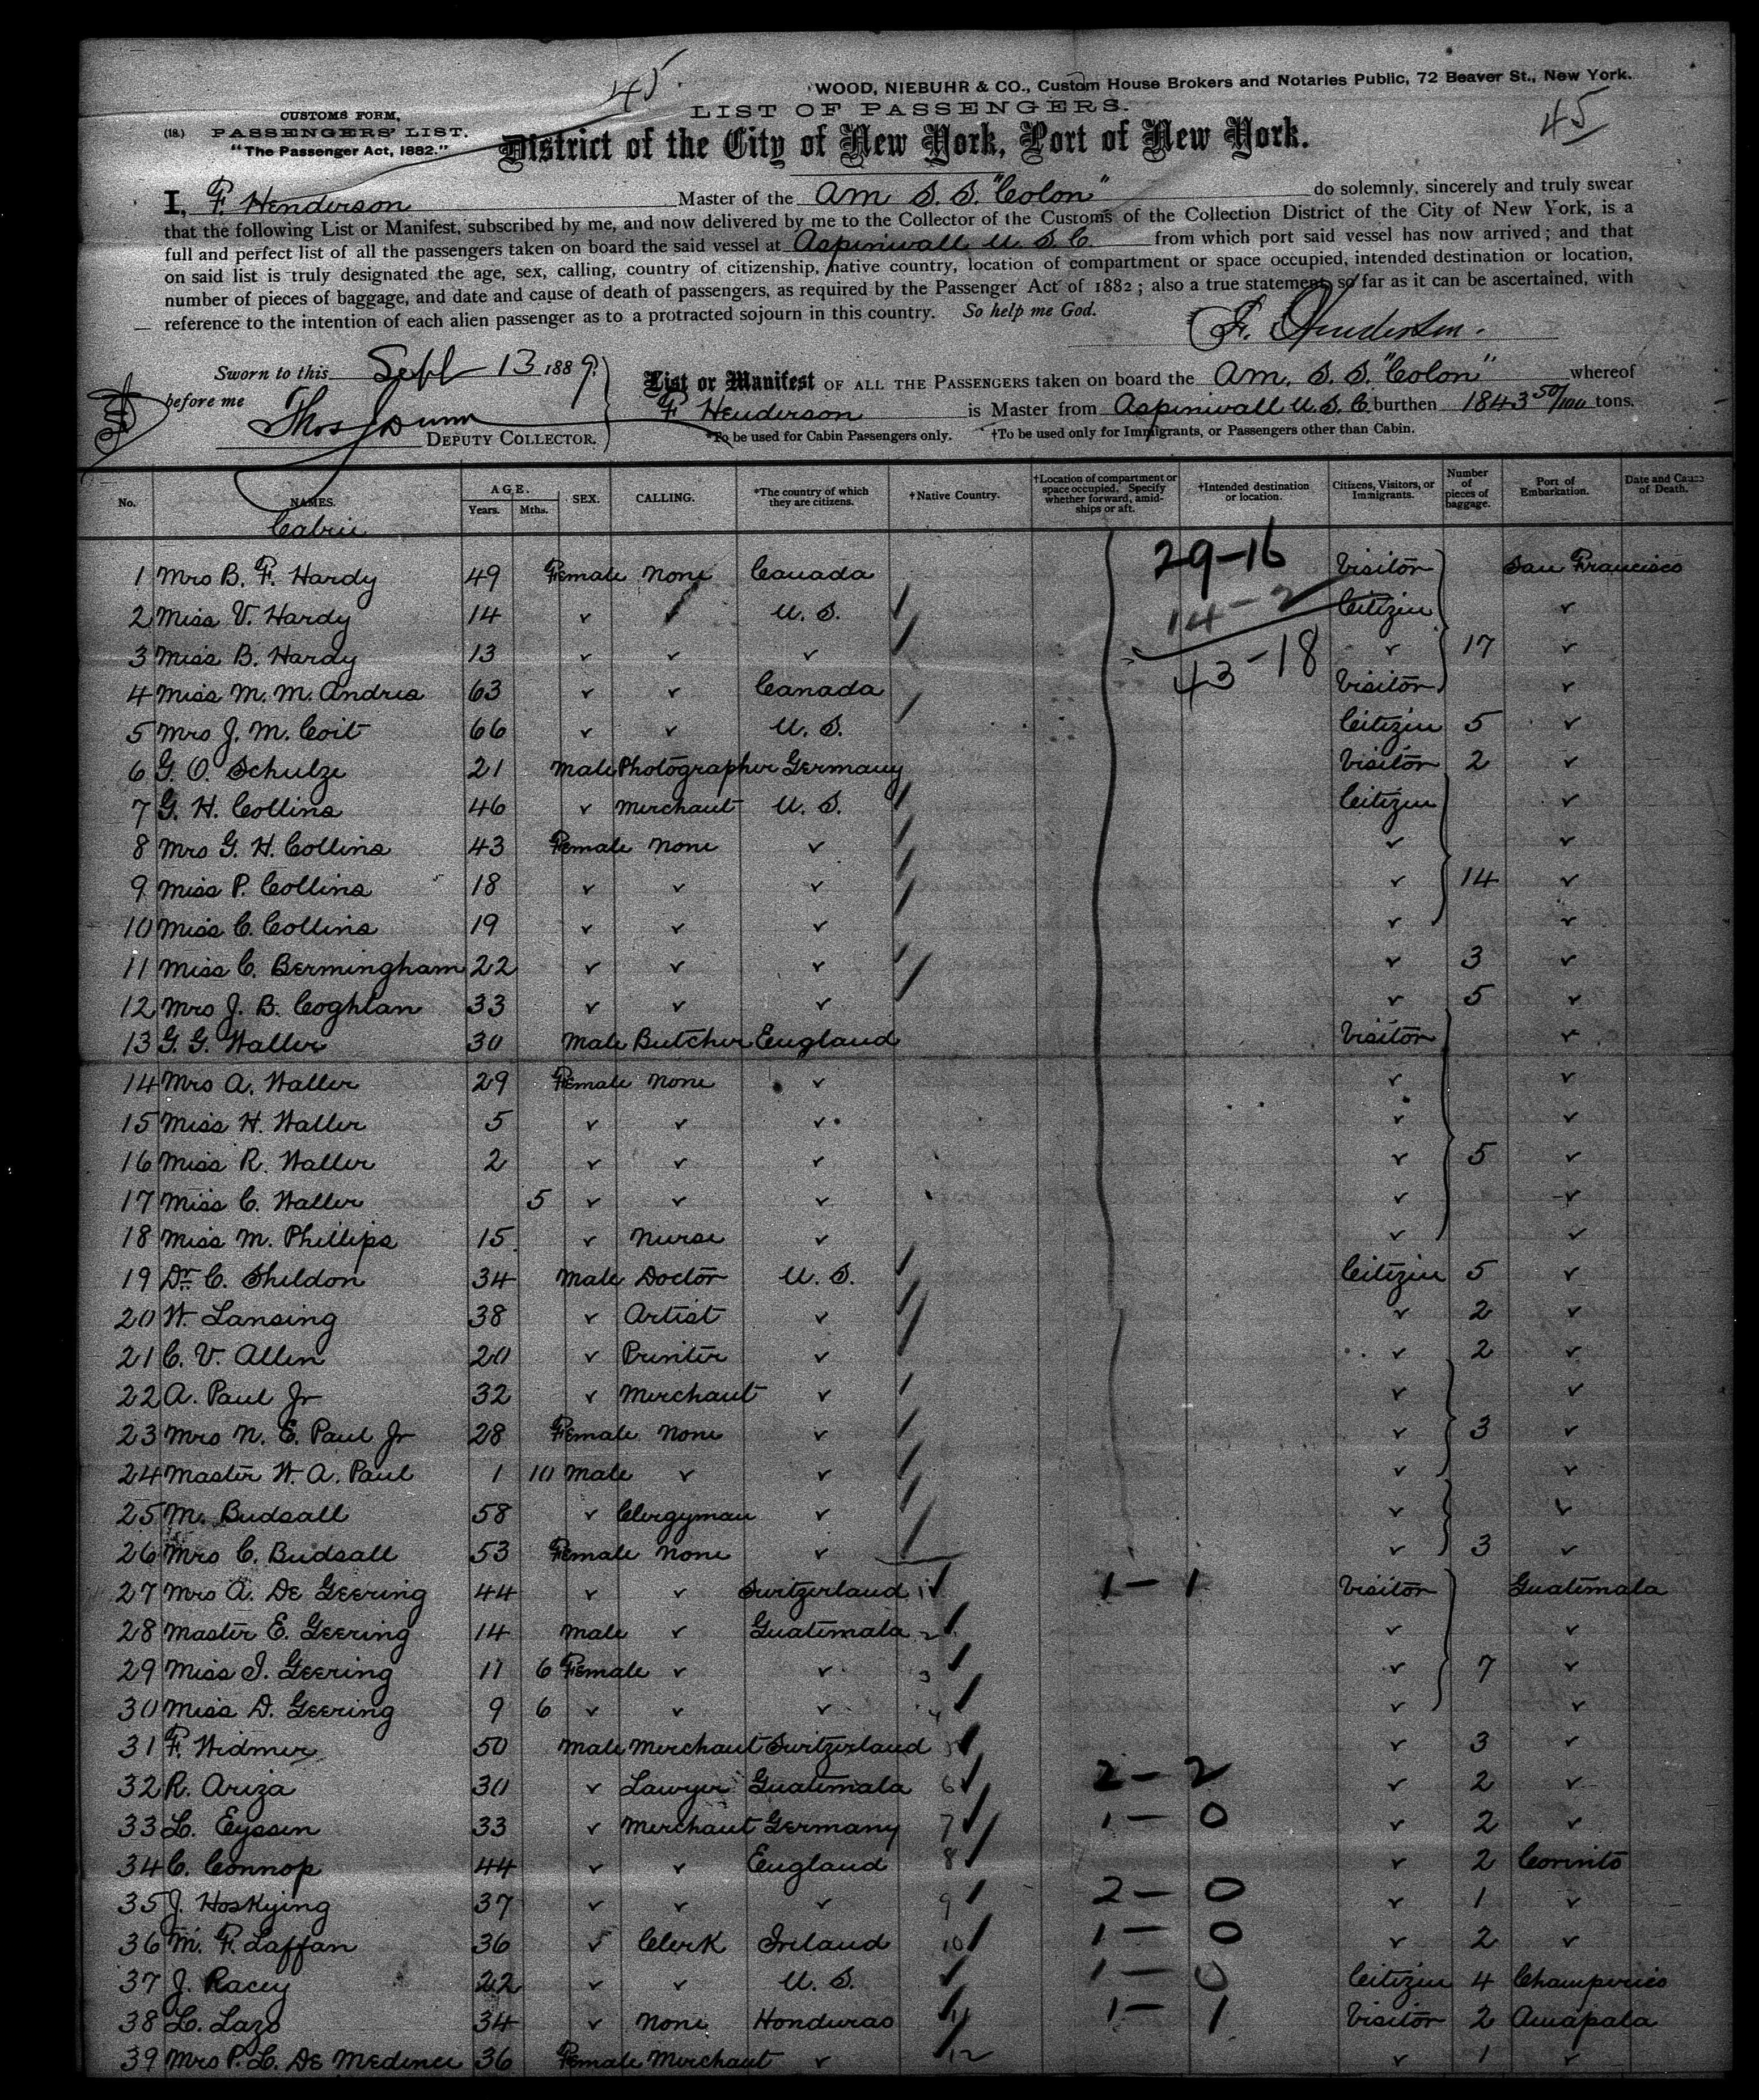 45
WOOD, NIEBUHR & CO., Custom House Brokers and Notaries Public, 72 Beaver St., New York.
45
CUSTOMS FORM,
(18.) PASSENGERS' LIST.
"The Passenger Act, 1882."
LIST OF PASSENGERS.
District of the City of New York, Port of New York.
I, F. Henderson Master of the Am S. S. "Colon" do solemnly, sincerely and truly swear
that the following List or Manifest, subscribed by me, and now delivered by me to the Collector of the Customs of the Collection District of the City of New York, is a
full and perfect list of all the passengers taken on board the said vessel at Aspinwall U. S. C. from which port said vessel has now arrived; and that
on said list is truly designated the age, sex, calling, country of citizenship, native country, location of compartment or space occupied, intended destination or location,
number of pieces of baggage, and date and cause of death of passengers, as required by the Passenger Act of 1882; also a true statement, so far as it can be ascertained, with
reference to the intention of each alien passenger as to a protracted sojourn in this country. So help me God.
F. Henderson.
Sworn to this Sept 13 1889.
before me
Thos Dunn
DEPUTY COLLECTOR.
List or Manifest OF ALL THE PASSENGERS taken on board the Am. S. S. "Colon" whereof
F Henderson is Master from Aspinwall U. S. C burthen 1843 50/100 tons.
*To be used for Cabin Passengers only. †To be used only for Immigrants, or Passengers other than Cabin.
No. NAMES. AGE. Years. Mths. SEX. CALLING. *The country of which they are citizens. †Native Country. †Location of compartment or space occupied. Specify whether forward, amidships or aft. †Intended destination or location. Citizens, Visitors, or Immigrants. Number of pieces of baggage. Port of Embarkation. Date and Cause of Death.
Cabin
29-16
14-2
43-18
1 Mrs B. F. Hardy 49 Female None Canada Visitor San Francisco
2 Miss V. Hardy 14 ✓ ✓ U. S. Citizen ✓
3 Miss B. Hardy 13 ✓ ✓ ✓ ✓ 17 ✓
4 Miss M. M. Andris 63 ✓ ✓ Canada Visitor ✓
5 Mrs J. M. Coit 66 ✓ ✓ U. S. Citizen 5 ✓
6 G. O. Schulze 21 Male Photographer Germany Visitor 2 ✓
7 G. H. Collins 46 ✓ Merchant U. S. Citizen ✓
8 Mrs G. H. Collins 43 Female None ✓ ✓ ✓
9 Miss P. Collins 18 ✓ ✓ ✓ ✓ 14 ✓
10 Miss C. Collins 19 ✓ ✓ ✓ ✓ ✓
11 Miss C. Bermingham 22 ✓ ✓ ✓ ✓ 3 ✓
12 Mrs J. B. Coghlan 33 ✓ ✓ ✓ ✓ 5 ✓
13 G. G. Waller 30 Male Butcher England Visitor ✓
14 Mrs A. Waller 29 Female None ✓ ✓ ✓
15 Miss H. Waller 5 ✓ ✓ ✓ ✓ ✓
16 Miss R. Waller 2 ✓ ✓ ✓ ✓ 5 ✓
17 Miss C. Waller 5 ✓ ✓ ✓ ✓ ✓
18 Miss M. Phillips 15 ✓ Nurse ✓ ✓ ✓
19 Dr. C. Sheldon 34 Male Doctor U. S. Citizen 5 ✓
20 W. Lansing 38 ✓ Artist ✓ ✓ 2 ✓
21 C. V. Allen 20 ✓ Printer ✓ ✓ 2 ✓
22 A. Paul Jr 32 ✓ Merchant ✓ ✓ ✓
23 Mrs N. E. Paul Jr 28 Female None ✓ ✓ 3 ✓
24 Master W. A. Paul 1 10 Male ✓ ✓ ✓ ✓
25 M. Budsall 58 ✓ Clergyman ✓ ✓ ✓
26 Mrs C. Budsall 53 Female None ✓ ✓ 3 ✓
27 Mrs A. De Geering 44 ✓ ✓ Switzerland 1 1-1 Visitor Guatemala
28 Master E. Geering 14 Male ✓ Guatemala 2 ✓ ✓
29 Miss I. Geering 11 6 Female ✓ ✓ 3 ✓ 7 ✓
30 Miss D. Geering 9 6 ✓ ✓ ✓ 4 ✓ ✓
31 F. Widmer 50 Male Merchant Switzerland 5 ✓ 3 ✓
32 R. Ariza 30 ✓ Lawyer Guatemala 6 2-2 ✓ 2 ✓
33 L. Eyssen 33 ✓ Merchant Germany 7 1-0 ✓ 2 ✓
34 C. Connop 44 ✓ ✓ England 8 ✓ 2 Corinto
35 J. Hoskying 37 ✓ ✓ ✓ 9 2-0 ✓ 1 ✓
36 M. F. Laffan 36 ✓ Clerk Ireland 10 1-0 ✓ 2 ✓
37 J. Racey 22 ✓ ✓ U. S. 1-0 Citizen 4 Champerico
38 L. Lazo 34 ✓ None Honduras 11 1-1 Visitor 2 Amapala
39 Mrs P. L. De Medina 36 Female Merchant ✓ 12 ✓ 1 ✓